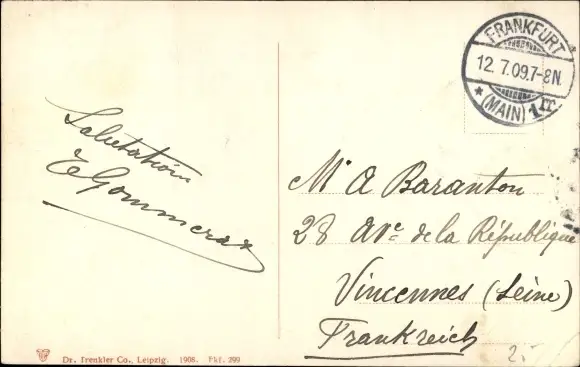 FRANKFURT
12.7.09.7-8N.
* (MAIN) 1
Salutations
E Gommerat
Mr A Baranton
28 Ave de la République
Vincennes (Seine)
Frankreich
Dr. Trenkler Co., Leipzig. 1908. Fkf. 299
2.-